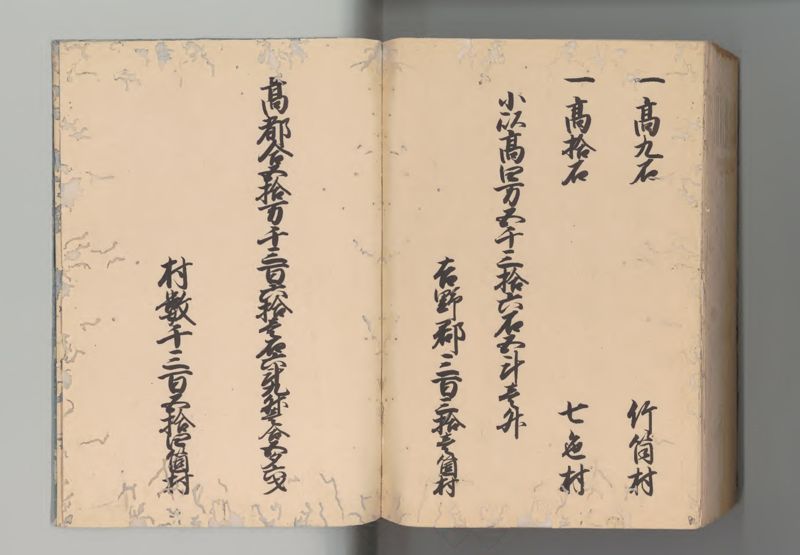 一 高九石 竹筒村
一 高拾石 七色村
小以高四万五千三拾六石五斗壱升
吉野郡 三百三拾壱箇村
高都合五拾万千三百六拾壱石六斗九升
村数千三百五拾四箇村